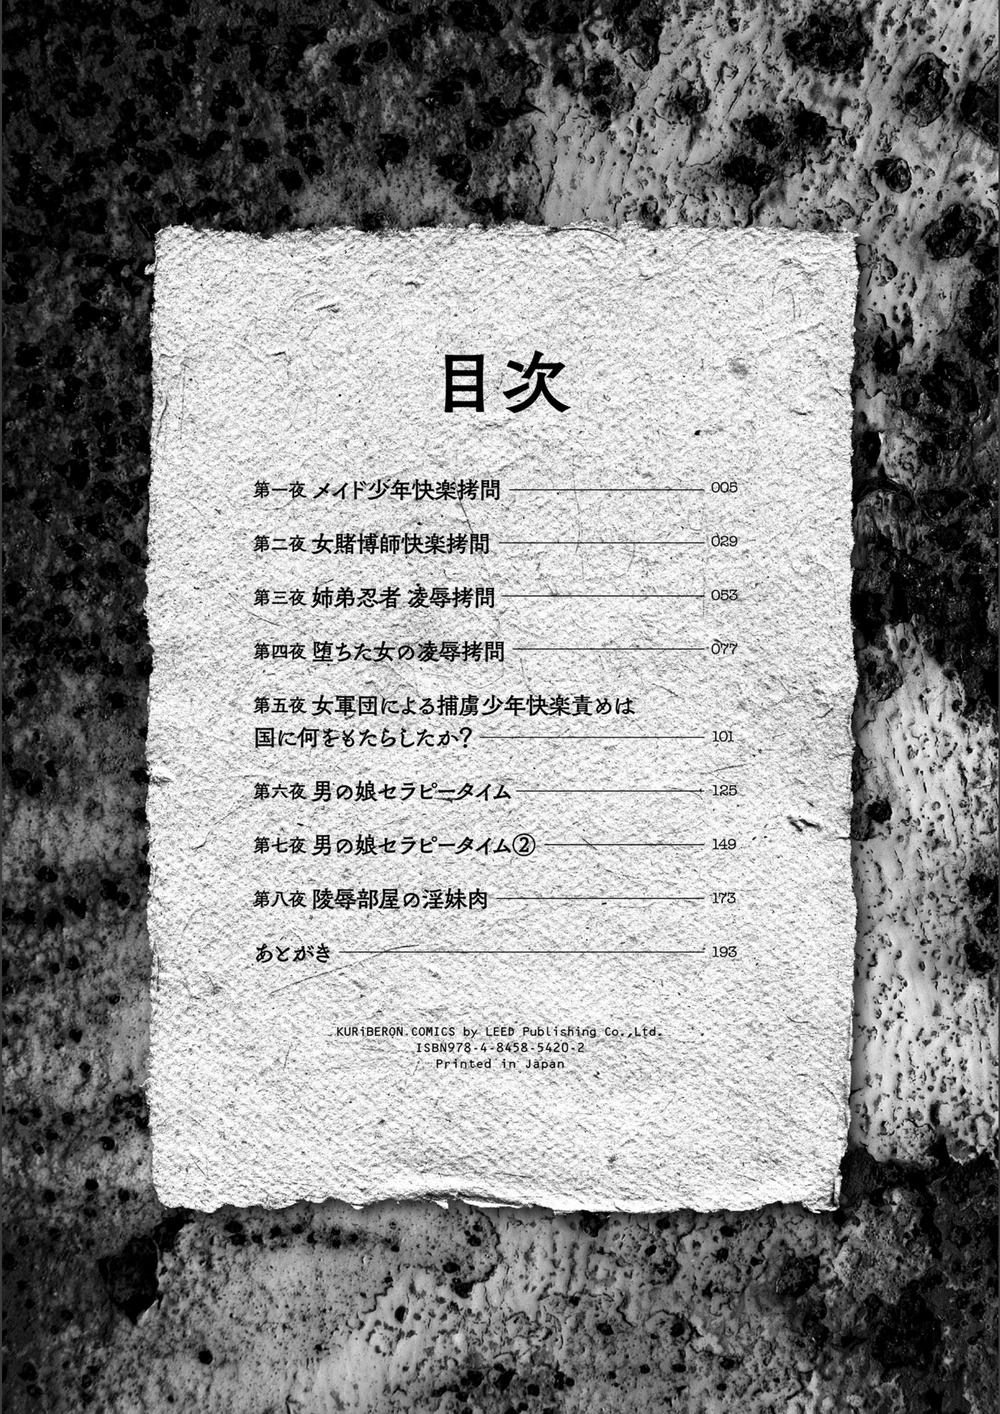 目次
第一夜 メイド少年快楽拷問 005
第二夜 女賭博師快楽拷問 029
第三夜 姉弟忍者 凌辱拷問 053
第四夜 堕ちた女の凌辱拷問 077
第五夜 女軍団による捕虜少年快楽責めは
国に何をもたらしたか? 101
第六夜 男の娘セラピータイム 125
第七夜 男の娘セラピータイム② 149
第八夜 陵辱部屋の淫妹肉 173
あとがき 193
KURiBERON COMICS by LEED Publishing Co.,Ltd.
ISBN978-4-8458-5420-2
Printed in Japan